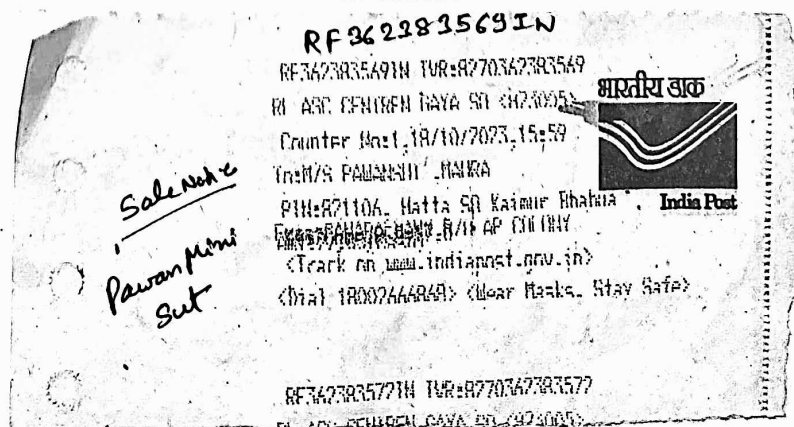 RF362383569IN
RF362383569IN IVR:8270362383569
RL ABC CENTREN GAYA SO <823005>
Counter No:1,18/10/2023,15:59
To:M/S PAWANSHI ,MAHRA
PIN:821106, Hatta SO Kaimur Bhabua
A/P COLONY
<Track on www.indiapost.gov.in>
<Dial 18002666868> <Wear Masks, Stay Safe>
भारतीय डाक
India Post
Sale Notice
Pawan Mini
RF362383577IN IVR:8270362383577
RL ABC CENTREN GAYA SO <823005>